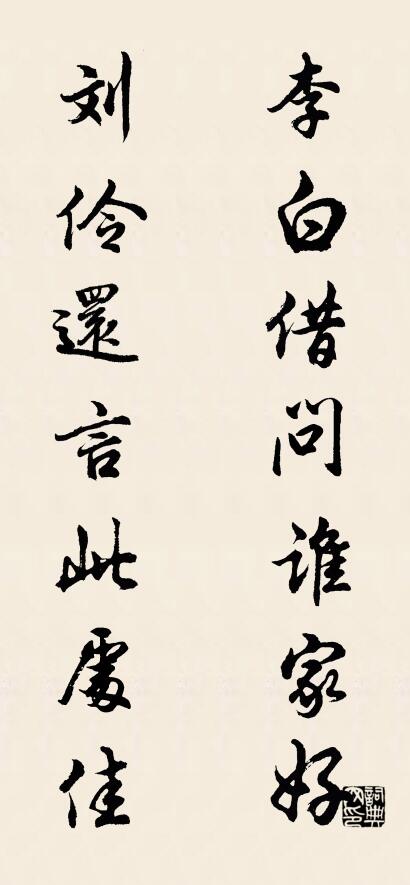 李白借问谁家好
刘伶還言此處佳